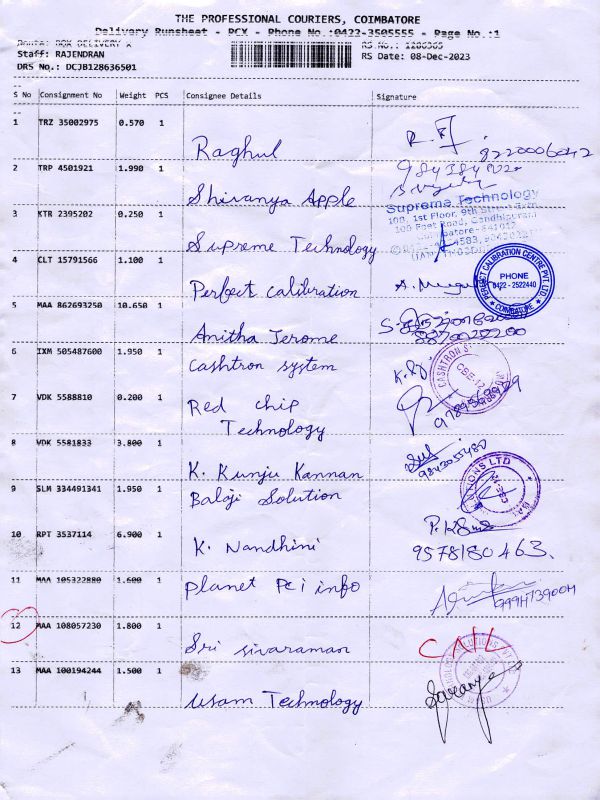 THE PROFESSIONAL COURIERS, COIMBATORE
Delivery Runsheet - PCX - Phone No.:0422-3505555 - Page No.:1
RS No.: 1286365
Staff: RAJENDRAN
RS Date: 08-Dec-2023
DRS No.: DCJB128636501
S No Consignment No Weight PCS Consignee Details Signature
1 TRZ 35002975 0.570 1
Raghul
8220006042
2 TRP 4501921 1.990 1
Shivanya Apple
Supreme Technology
3 KTR 2395202 0.250 1
100 Feet Road, Gandhipuram
Supreme Technology
4 CLT 15791566 1.100 1
PERFECT CALIBRATION CENTRE PVT LTD
PHONE
0422 - 2522440
COIMBATORE
Perfect calibration
5 MAA 862693250 10.650 1
Anitha Jerome
6 IXM 505487600 1.950 1
Cashtron system
CASHTRON
CBE-12
7 VDK 5588810 0.200 1
Red chip
Technology
8 VDK 5581833 3.800 1
9843055480
K. Kunju Kannan
9 SLM 334491341 1.950 1
Balaji Solution
10 RPT 3537114 6.900 1
K. Nandhini
9578180463.
11 MAA 105322880 1.600 1
planet Pci info
12 MAA 108057230 1.800 1
Sri sivaraman
CALL
13 MAA 100194244 1.500 1
Usam Technology